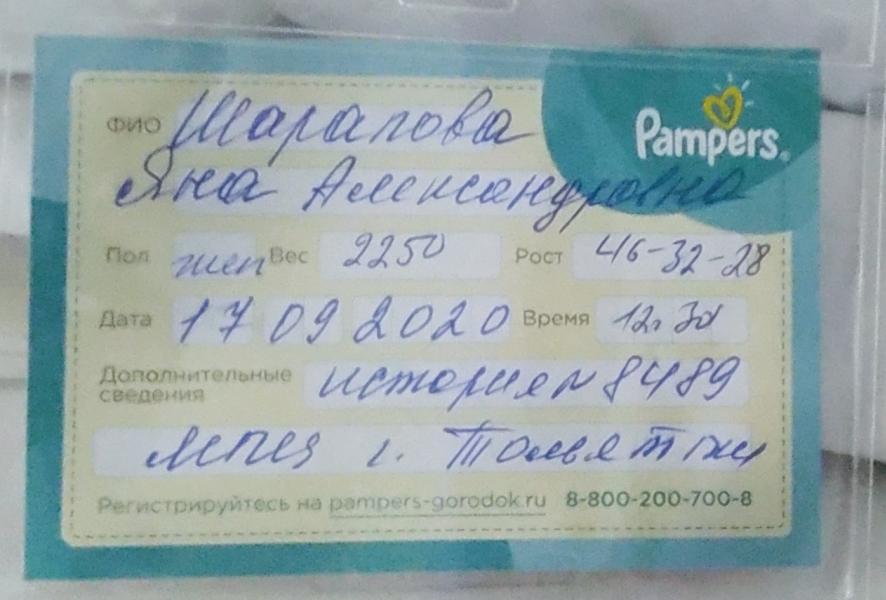 Pampers
ФИО Шарапова
Яна Александровна
Пол жен Вес 2250 Рост 46-32-28
Дата 17 09 2020 Время 12.30
Дополнительные сведения история № 8489
г. Тольятти
Регистрируйтесь на pampers-gorodok.ru 8-800-200-700-8